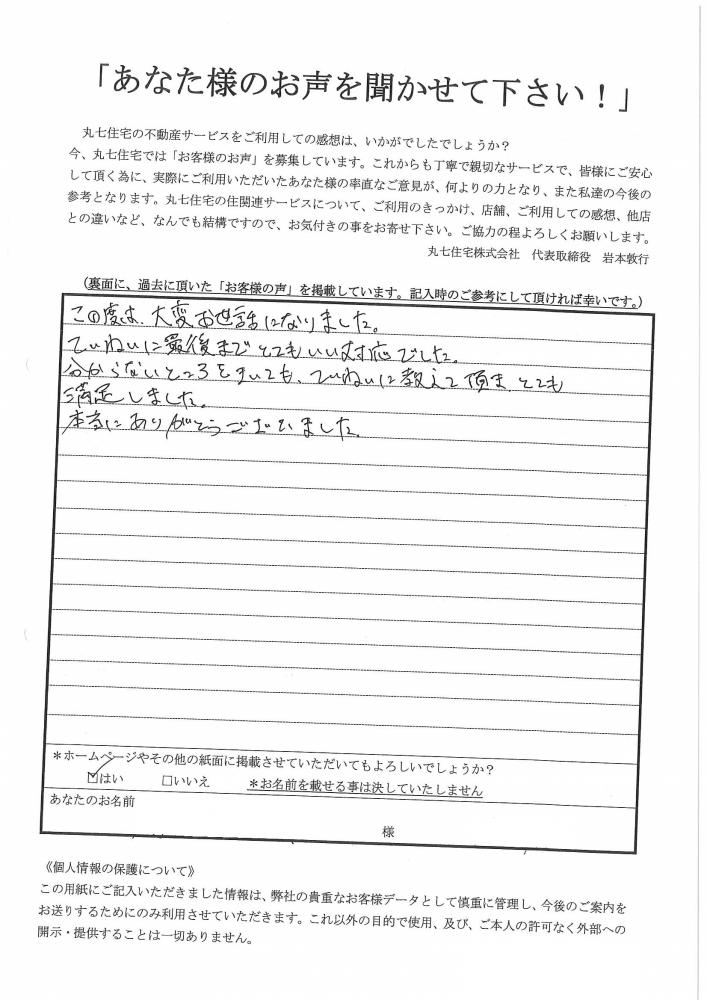 「あなた様のお声を聞かせて下さい!」
丸七住宅の不動産サービスをご利用しての感想は、いかがでしたでしょうか?
今、丸七住宅では「お客様のお声」を募集しています。これからも丁寧で親切なサービスで、皆様にご安心
して頂く為に、実際にご利用いただいたあなた様の率直なご意見が、何よりの力となり、また私達の今後の
参考となります。丸七住宅の住関連サービスについて、ご利用のきっかけ、店舗、ご利用しての感想、他店
との違いなど、なんでも結構ですので、お気付きの事をお寄せ下さい。ご協力の程よろしくお願いします。
丸七住宅株式会社 代表取締役 岩本敦行
(裏面に、過去に頂いた「お客様の声」を掲載しています。記入時のご参考にして頂ければ幸いです。)
この度は、大変お世話になりました。
ていねいに最後までとてもいい対応でした。
分からないところをきいても、ていねいに教えて頂き とても
満足しました。
本当にありがとうございました。
*ホームページやその他の紙面に掲載させていただいてもよろしいでしょうか?
☑はい □いいえ *お名前を載せる事は決していたしません
あなたのお名前
様
《個人情報の保護について》
この用紙にご記入いただきました情報は、弊社の貴重なお客様データとして慎重に管理し、今後のご案内を
お送りするためにのみ利用させていただきます。これ以外の目的で使用、及び、ご本人の許可なく外部への
開示・提供することは一切ありません。